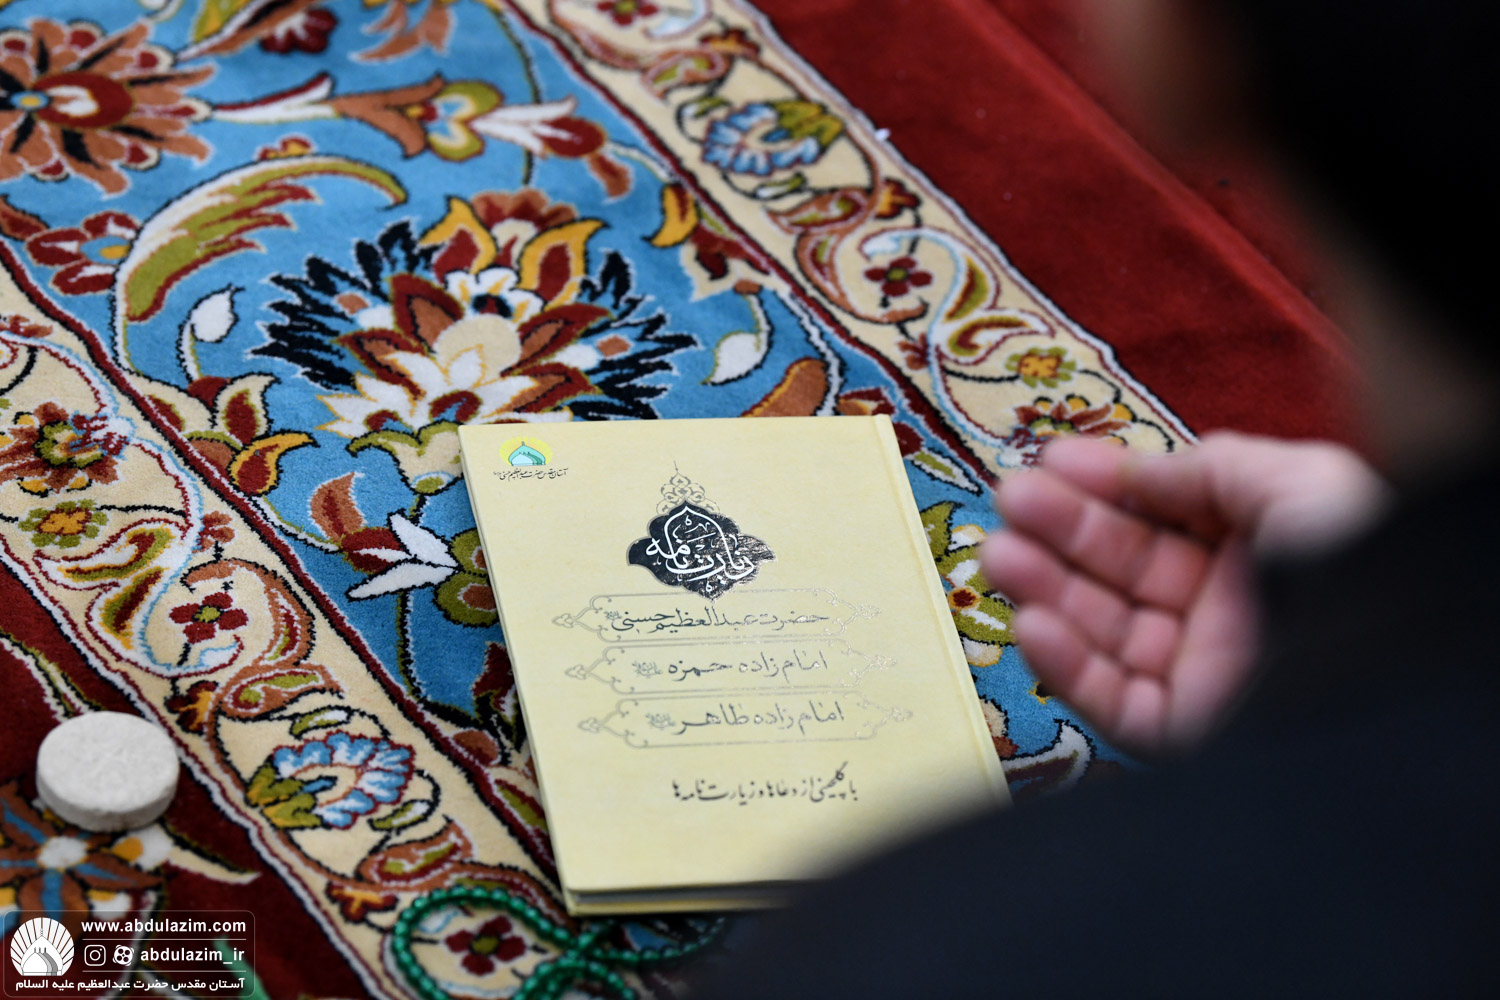 آستان مقدس حضرت عبدالعظیم حسنی
زیارت‌نامه
حضرت عبدالعظیم حسنی
امام زاده حمزه
امام زاده طاهر
با گلچینی از دعاها و زیارت نامه ها
www.abdulazim.com
abdulazim_ir
آستان مقدس حضرت عبدالعظیم علیه السلام